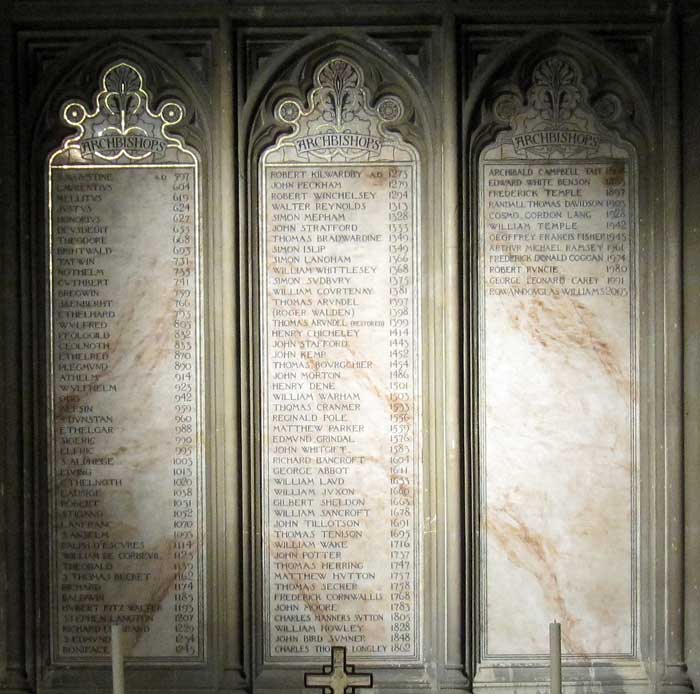 ARCHBISHOPS
S. AVGVSTINE A.D. 597
LAVRENTIVS 604
MELLITVS 619
JVSTVS 624
HONORIVS 627
DEVSDEDIT 653
THEODORE 668
BRIHTWALD 693
TATWIN 731
NOTHELM 735
CVTHBERT 741
BREGWIN 759
JAENBERHT 766
ETHELHARD 793
WVLFRED 805
FEOLOGILD 832
CEOLNOTH 833
ETHELRED 870
PLEGMVND 890
ATHELM 914
WVLFHELM 923
ODO 942
AELFSIN 959
S. DVNSTAN 960
ETHELGAR 988
SIGERIC 990
ELFRIC 995
S. ALPHEGE 1005
LIVING 1013
ETHELNOTH 1020
EADSIGE 1038
ROBERT 1051
STIGAND 1052
LANFRANC 1070
S. ANSELM 1093
RALPH D'ESCVRES 1114
WILLIAM DE CORBEVIL 1123
THEOBALD 1139
S. THOMAS BECKET 1162
RICHARD 1174
BALDWIN 1185
HVBERT FITZ WALTER 1193
STEPHEN LANGTON 1207
RICHARD GRAND 1229
S. EDMVND 1234
BONIFACE 1245
ARCHBISHOPS
ROBERT KILWARDBY A.D. 1273
JOHN PECKHAM 1279
ROBERT WINCHELSEY 1294
WALTER REYNOLDS 1313
SIMON MEPHAM 1328
JOHN STRATFORD 1333
THOMAS BRADWARDINE 1349
SIMON ISLIP 1349
SIMON LANGHAM 1366
WILLIAM WHITTLESEY 1368
SIMON SVDBVRY 1375
WILLIAM COVRTENAY 1381
THOMAS ARVNDEL 1397
(ROGER WALDEN) 1398
THOMAS ARVNDEL (RESTORED) 1399
HENRY CHICHELEY 1414
JOHN STAFFORD 1443
JOHN KEMP 1452
THOMAS BOVRGCHIER 1454
JOHN MORTON 1486
HENRY DENE 1501
WILLIAM WARHAM 1503
THOMAS CRANMER 1533
REGINALD POLE 1556
MATTHEW PARKER 1559
EDMVND GRINDAL 1576
JOHN WHITGIFT 1583
RICHARD BANCROFT 1604
GEORGE ABBOT 1611
WILLIAM LAVD 1633
WILLIAM JVXON 1660
GILBERT SHELDON 1663
WILLIAM SANCROFT 1678
JOHN TILLOTSON 1691
THOMAS TENISON 1695
WILLIAM WAKE 1716
JOHN POTTER 1737
THOMAS HERRING 1747
MATTHEW HVTTON 1757
THOMAS SECKER 1758
FREDERICK CORNWALLIS 1768
JOHN MOORE 1783
CHARLES MANNERS SVTTON 1805
WILLIAM HOWLEY 1828
JOHN BIRD SVMNER 1848
CHARLES THOS LONGLEY 1862
ARCHBISHOPS
ARCHIBALD CAMPBELL TAIT 1868
EDWARD WHITE BENSON 1883
FREDERICK TEMPLE 1897
RANDALL THOMAS DAVIDSON 1903
COSMO GORDON LANG 1928
WILLIAM TEMPLE 1942
GEOFFREY FRANCIS FISHER 1945
ARTHUR MICHAEL RAMSEY 1961
FREDERICK DONALD COGGAN 1974
ROBERT RUNCIE 1980
GEORGE LEONARD CAREY 1991
ROWAN DOUGLAS WILLIAMS 2003